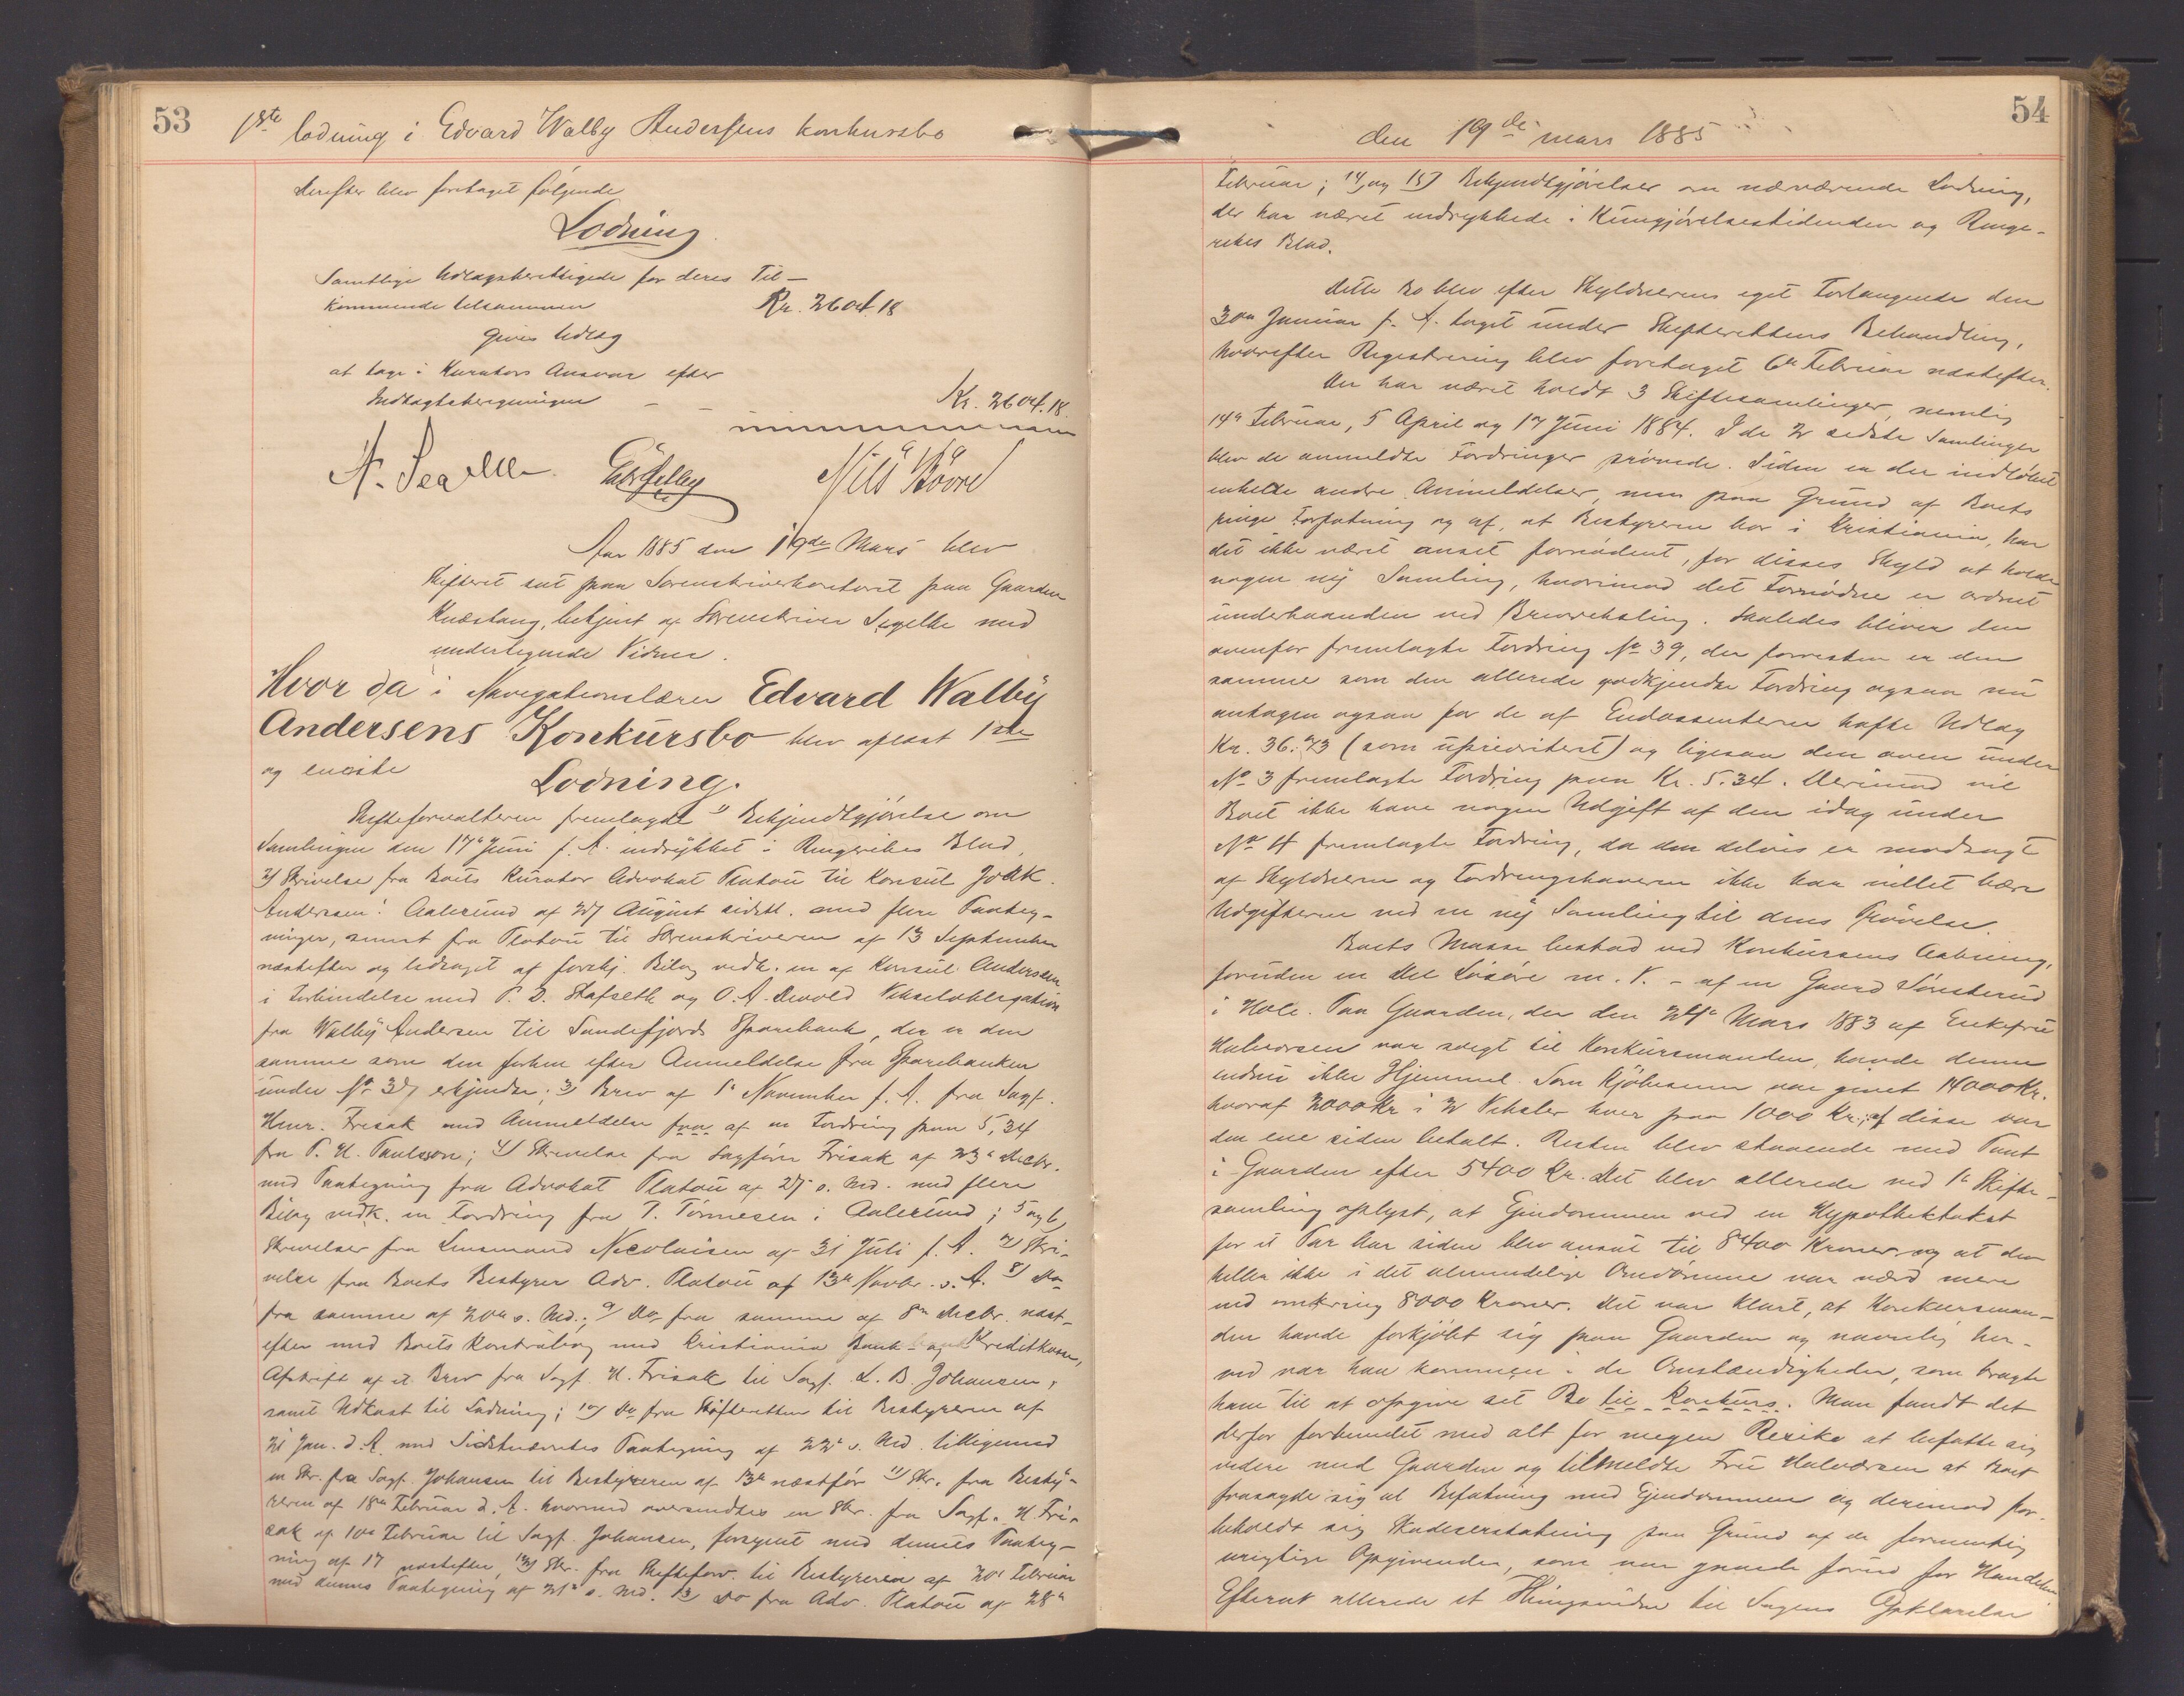 53
1ste lodning i Edvard Walby Andersens konkursbo
Derefter blev foretaget følgende
Lodning
Samtlige Udlagsberettigede for deres Til-
kommende tilsammen Kr. 2604.18
gives Udlag
at tage i Kurators Ansvar efter
Indtægtsberegningen - - Kr. 2604.18.
Nils Bövre
Aar 1885 den 19de Mars blev
Skifteret sat paa Sorenskriverkontoret paa Gaarden
Knæstang, betjent af Sorenskriver Segelke med
undertegnede Vidner.
Hvor da i Navigationslærer Edvard Walby
Andersens Konkursbo blev aflæst 1ste
og eneste Lodning.
Skifteforvalteren fremlagde 1) Bekjendtgjørelse om
Samlingen den 17de Juni f. A. indrykket i Ringerikes Blad,
2) Skrivelse fra Boets Kurator Advokat Platou til Konsul Joakk.
Andersen i Aalesund af 27 August sidstl. med flere Paateg-
ninger, senest fra Platou til Sorenskriveren af 13 September
næstefter og ledsaget af forskj. Bilag vedk. en af Konsul Andersen
i Forbindelse med P. D. Stafseth og O. A. Devold Vekselobligation
fra Walby Andersen til Sandefjords Sparebank, der er den
samme som den forhen efter Anmeldelse fra Sparebanken
under No 37 erkjendte; 3) Brev af 1ste November f. A. fra Sagf.
Henr. Frisak med Anmeldelse fra af en Fordring paa 5,34
fra P. H. Paulsson; 4) Skrivelse fra Sagfører Frisak af 23de Decbr.
med Paategning fra Advokat Platou af 27 s. Md. med flere
Bilag vedk. en Fordring fra T. Tönnesen i Aalesund; 5 og 6)
Skrivelser fra Lensmand Nicolaisen af 31 Juli f. A. 7) Skri-
velse fra Boets Bestyrer Adv. Platou af 13de Novbr. s. A. 8) Do
fra samme af 20de s. Md.; 9) Do fra samme af 8de Decbr. næst-
efter med Boets Kontrabog med Kristiania Bank- og Kreditkasse,
Afskrift af et Brev fra Sagf. H. Frisak til Sagf. L. B. Johansen,
samt Udkast til Lodning; 10) Do fra Skifteretten til Bestyreren af
21 Jan. d. A. med Sidstnævntes Paategning af 22de s. Md. tilligemed
en Skr. fra Sagf. Johansen til Bestyreren af 13de næstfør 11) Skr. fra Besty-
reren af 18de Februar d. A. hvormed oversendtes en Skr. fra Sagf. H. Fri-
sak af 10de Februar til Sagf. Johansen, forsynt med dennes Paateg-
ning af 17 næstefter, 12) Skr. fra Skifteforv. til Bestyreren af 20de Februar
med dennes Paategning af 21de s. Md. 13) Do fra Adv. Platou af 28de
54
den 19de mars 1885
Februar; 14) og 15) Bekjendtgjørelser om nærværende Lodning,
der har været indrykkede i Kungjørelsestidenden og Ringe-
rikes Blad.
Dette Bo blev efter Skyldnerens eget Forlangende den
30te Januar f. A. taget under Skifterettens Behandling,
hvorefter Registrering blev foretaget 6te Februar næstefter.
Der har været holdt 3 Skiftesamlinger, nemlig
14de Februar, 5 April og 17 Juni 1884. I de 2 sidste Samlinger
blev de anmeldte Fordringer prøvede. Siden er der indløbet
enkelte andre Anmeldelser, men paa Grund af Boets
ringe Forfatning og af, at Bestyreren bor i Kristiania, har
det ikke været anset fornødent, for disses Skyld at holde
nogen ny Samling, hvorimod det Fornødne er ordnet
underhaanden ved Brevveksling. Saaledes bliver den
ovenfor fremlagte Fordring No 39, der forresten er den
samme som den allerede godkjendte Fordring ogsaa nu
antagen ogsaa for de af Endossenterne hafte Udlæg
Kr. 36.73 (som uprioriteret) og ligesaa den oven under
No 3 fremlagte Fordring paa Kr. 5.34. Derimod vil
Boet ikke have nogen Udgift af den idag under
No 4 fremlagte Fordring, da den delvis er modsagt
af Skyldneren og Fordringshaveren ikke har villet bære
Udgifterne ved en ny Samling til dens Prøvelse.
Boets Masse bestod ved Konkursens Aabning,
foruden en Del Løsøre m. V. - af en Gaard Sönsterud
i Hole. Paa Gaarden, der den 24de Mars 1883 af Enkefru
Halvorsen var solgt til Konkursmanden, havde denne
endnu ikke Hjemmel. Som Kjøbesum var givet 14000 Kr.
hvoraf 2000 Kr i 2 Veksler hver paa 1000 Kr.; af disse var
den ene siden betalt. Resten blev staaende med Pant
i Gaarden efter 5400 Kr. Det blev allerede ved 1ste Skifte-
samling oplyst, at Eiendommen ved en Hypothektakst
for et Par Aar siden blev ansat til 8400 Kroner og at den
heller ikke i det almindelige Omdømme var værd mere
end omkring 8000 Kroner. Det var klart, at Konkursman-
den havde forkjøbt sig paa Gaarden og navnlig her-
ved var han kommen i de Omstændigheder, som bragte
ham til at opgive sit Bo til Konkurs. Man fandt det
derfor forbundet med alt for megen Risiko at befatte sig
videre med Gaarden og tilmeldte Fru Halvorsen at Boet
frasagde sig al Befatning med Eiendommen og derimod for-
beholdt sig Skadeserstatning paa Grund af de formentlig
urigtige Opgivender, som var gaaede forud for Handelen.
Efterat allerede et Thingsvidne til Sagens Opklarelse